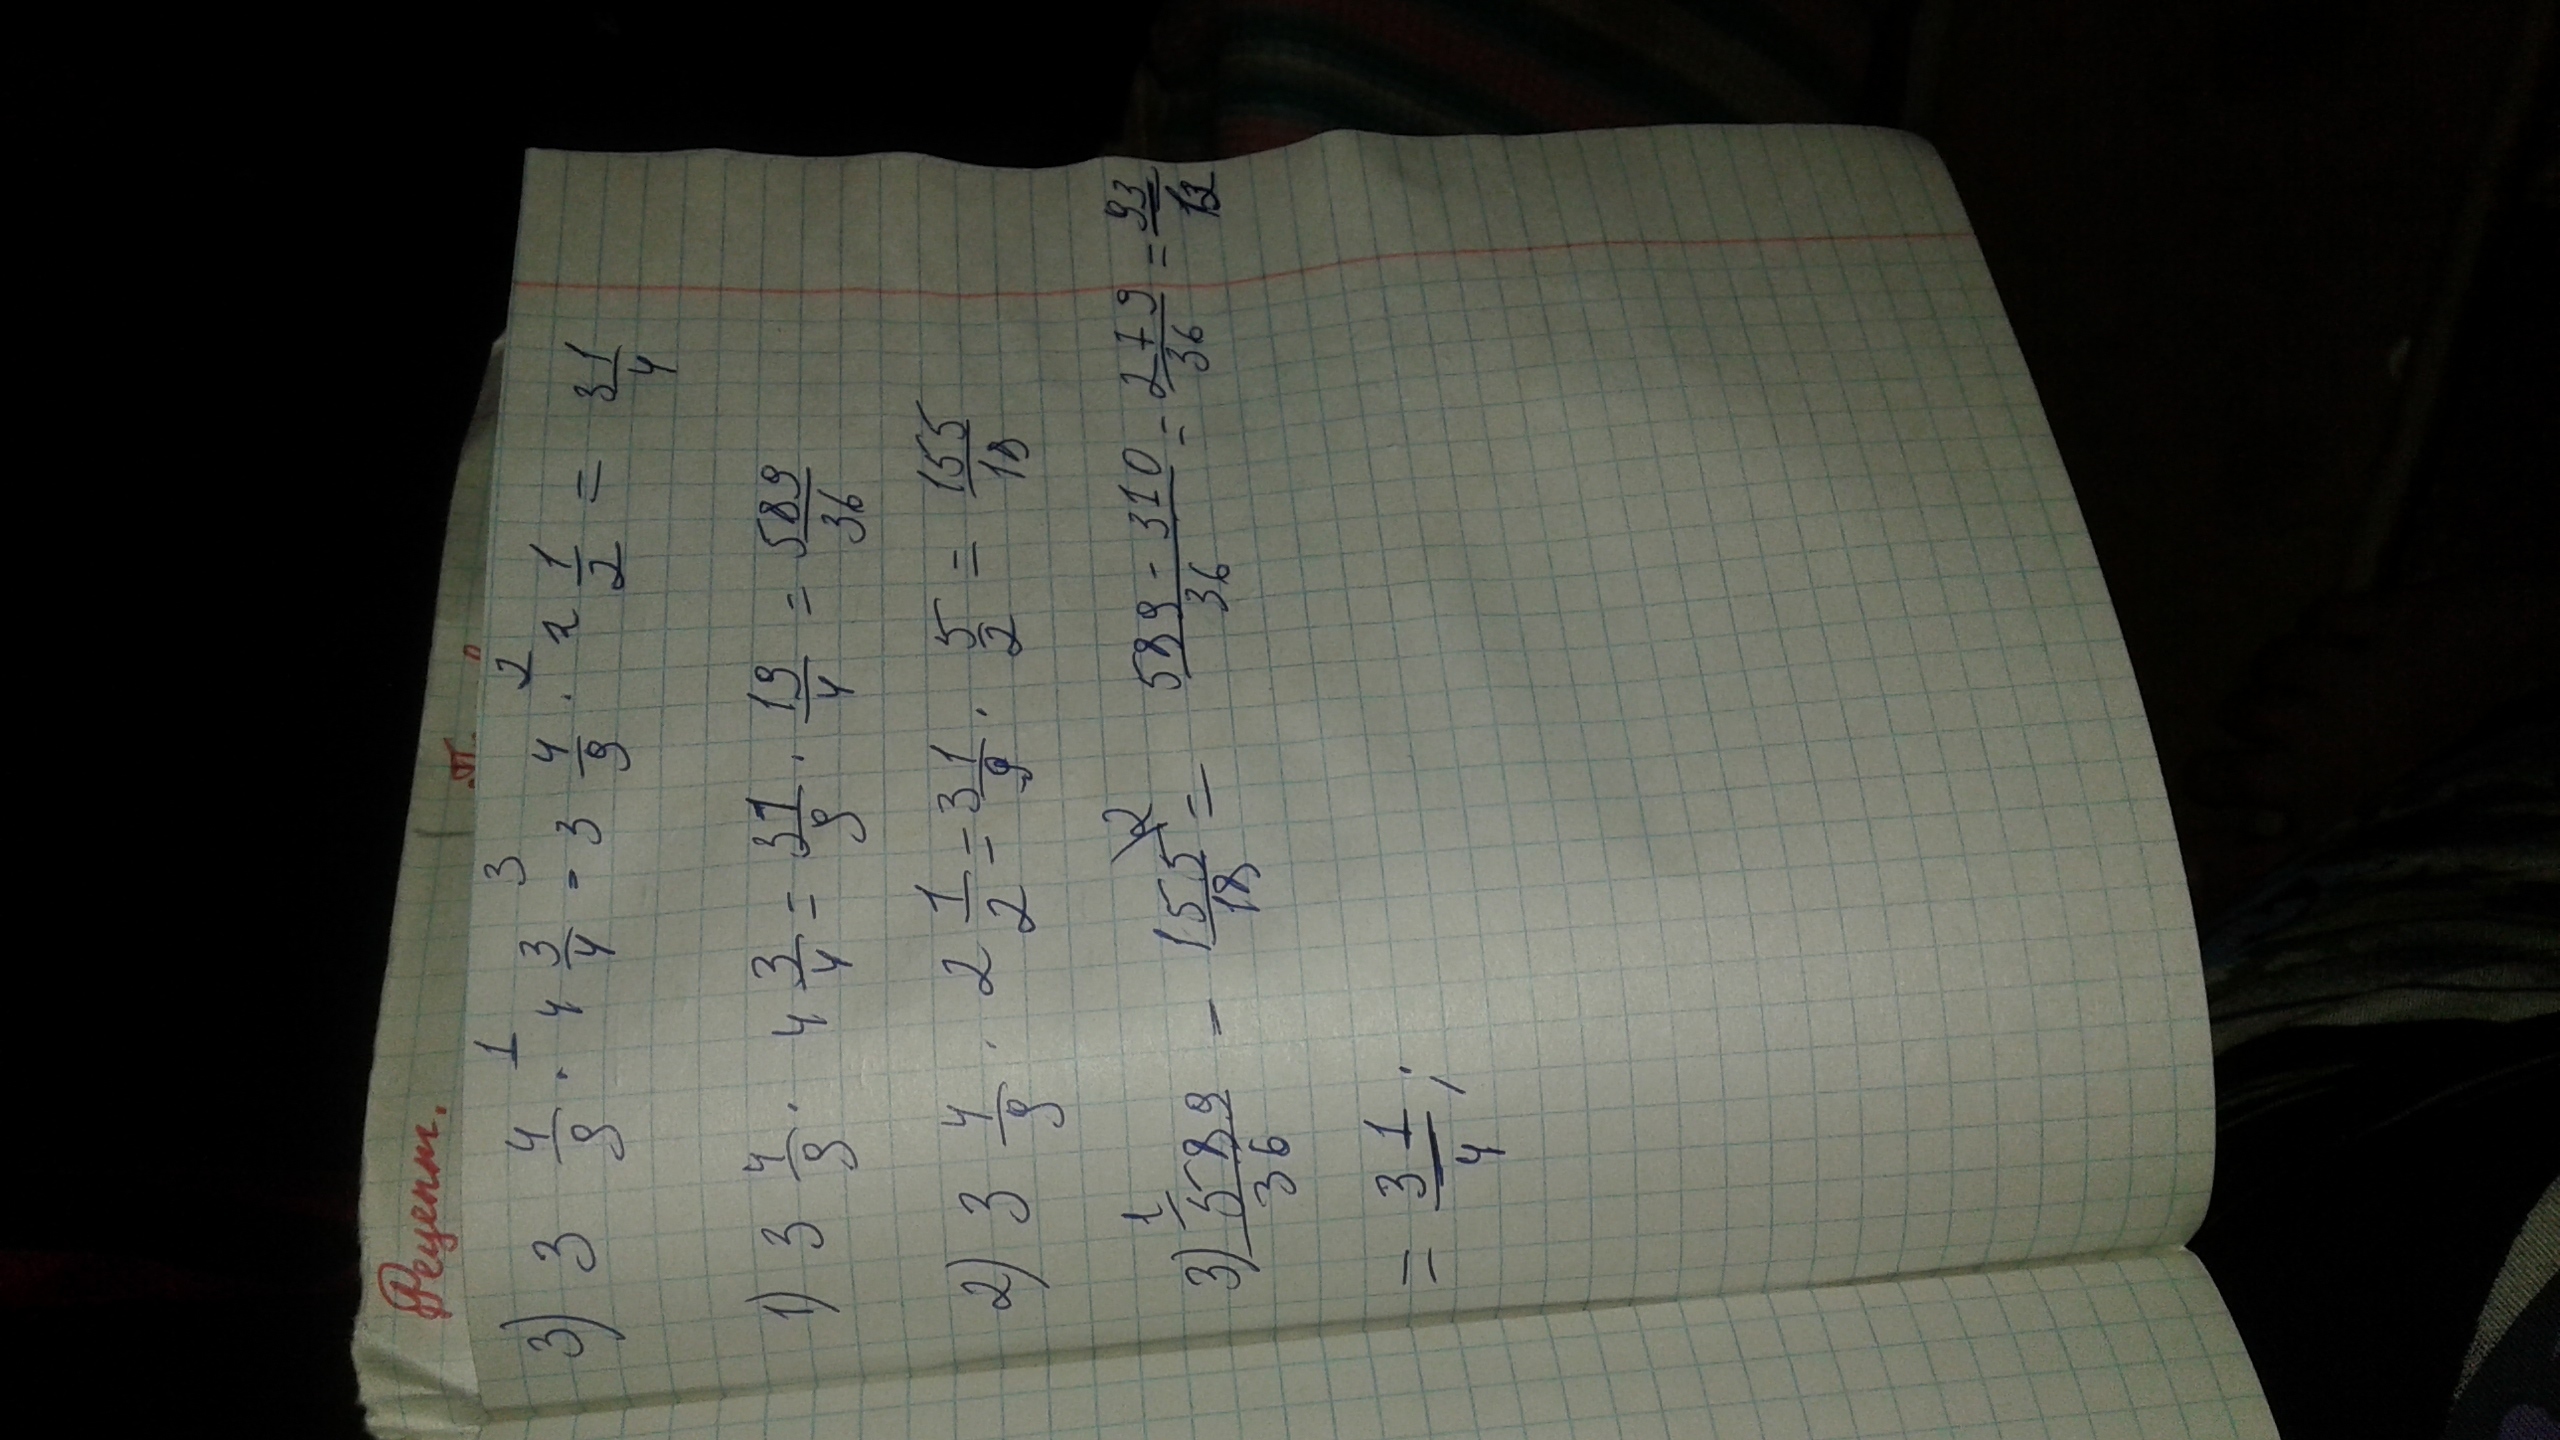 Рецепт.
1 3 2
3) 3 4/9 · 4 3/4 - 3 4/9 · 2 1/2 = 3 1/4
1) 3 4/9 · 4 3/4 = 31/9 · 19/4 = 589/36
2) 3 4/9 · 2 1/2 = 31/9 · 5/2 = 155/18
1 2
3) 589/36 - 155/18 = 589 - 310/36 = 279/36 = 93/12
= 3 1/4;